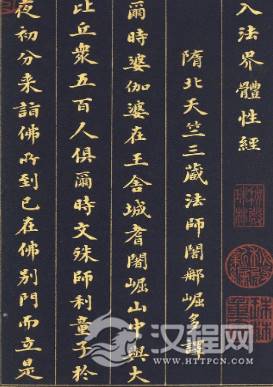 入法界體性經
隋北天竺三藏法師闍那崛多譯
爾時婆伽婆在王舍城耆闍崛山中與大
比丘衆五百人俱爾時文殊師利童子於
夜初分來詣佛所到已在佛別門而立是
汉程网
WWW.HTTPCN.COM